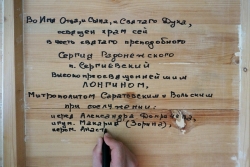 Во Имя Отца, и Сына, и Святаго Духа,
освящен храм сей
в честь святаго преподобного
Сергия Радонежского
п. Сергиевский
Высокопреосвященнейшим
ЛОНГИНОМ,
Митрополитом Саратовским и Вольским
при служении:
иерея Александра
игум. Макария (Зорина),
иером.